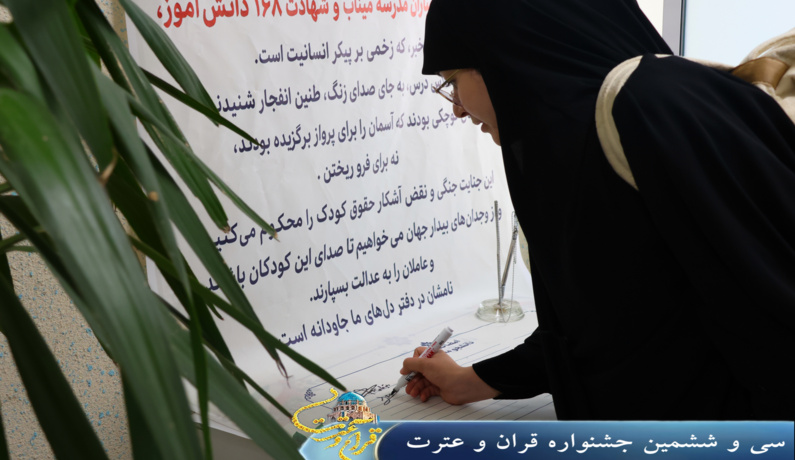 باران مدرسه میناب و شهادت ۱۶۸ دانش آموز،
خبر، که زخمی بر پیکر انسانیت است.
درس، به جای صدای زنگ، طنین انفجار شنیدند
کوچکی بودند که آسمان را برای پرواز برگزیده بودند،
نه برای فرو ریختن .
این جنایت جنگی و نقض آشکار حقوق کودک را محکوم می‌کنیم
و از وجدان‌های بیدار جهان می‌خواهیم تا صدای این کودکان باشند
و عاملان را به عدالت بسپارند.
نامشان در دفتر دل‌های ما جاودانه است
سی و ششمین جشنواره قران و عترت